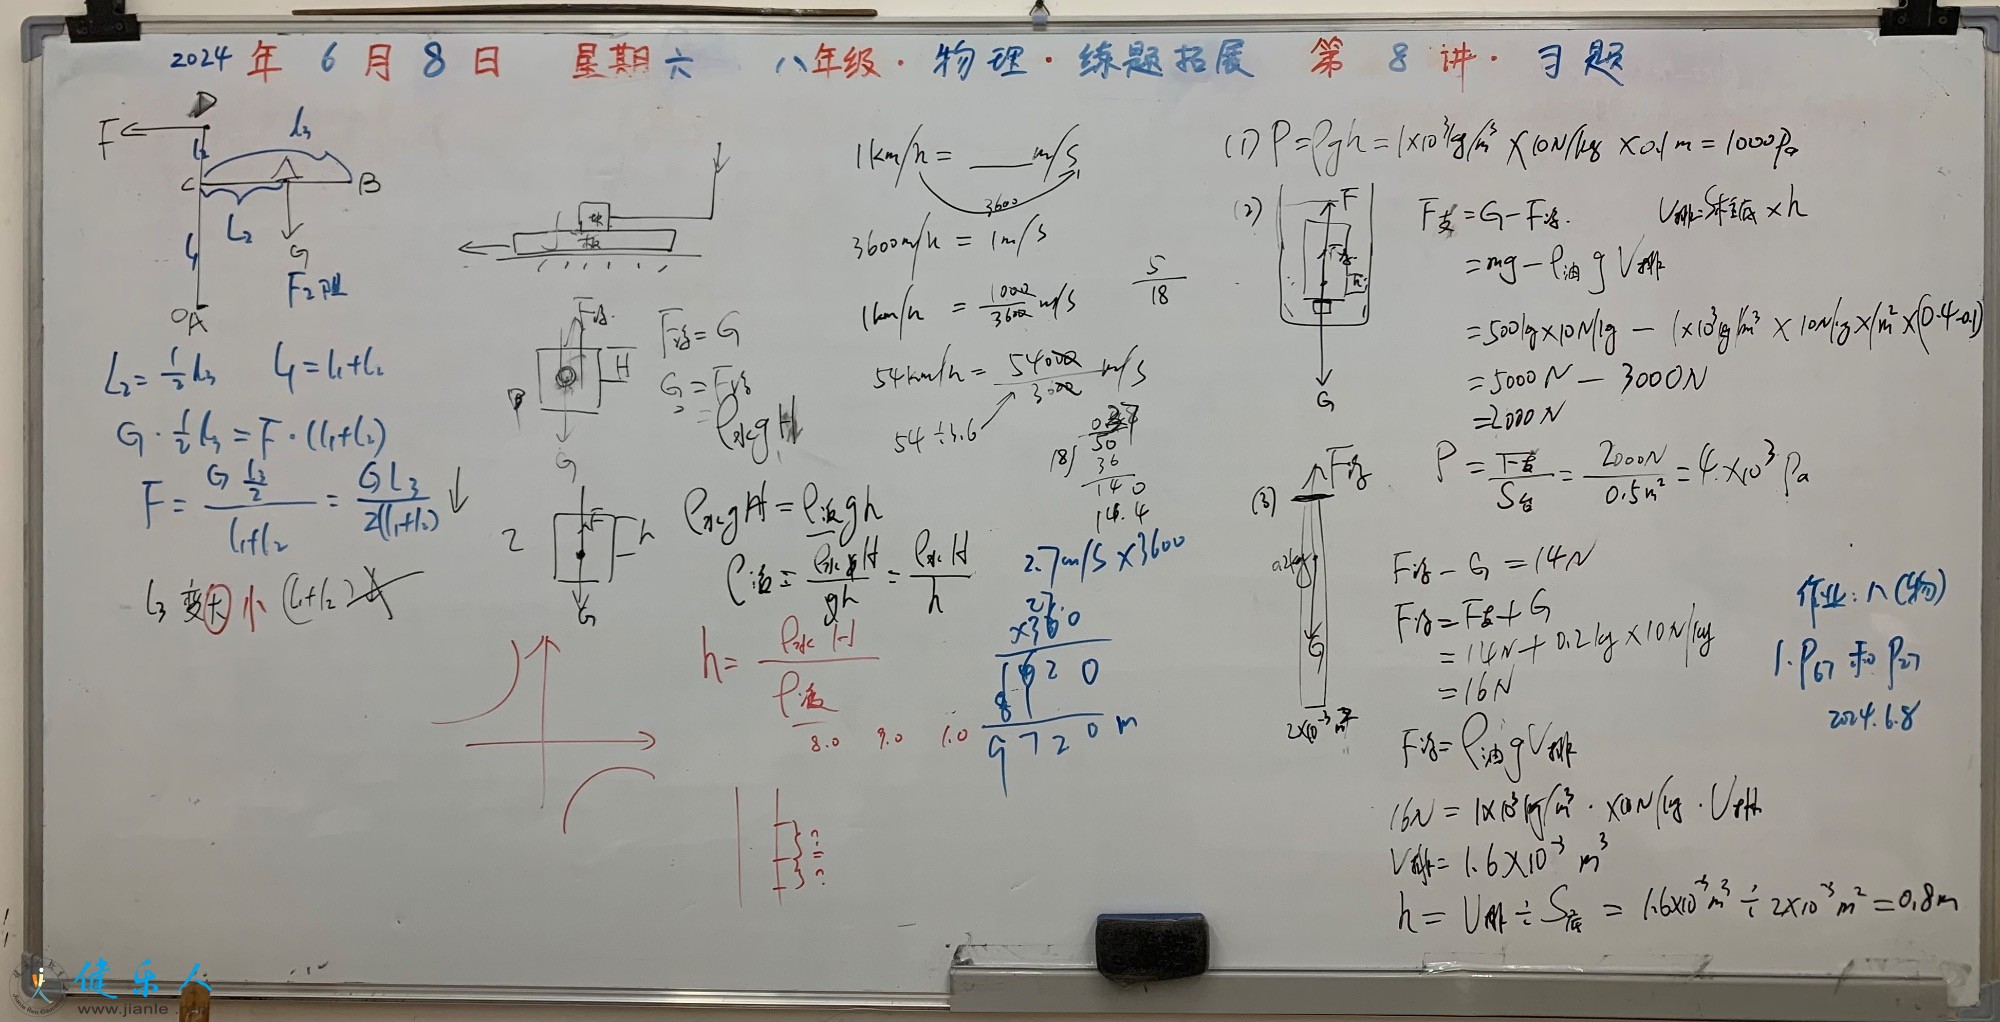 2024年6月8日 星期六 八年级·物理·练题拓展 第8讲·习题
F
l₂
l₃
C
B
L₂
l₁
G
F₂阻
A
L₂=½l₃ l₁=l₁+l₂
G·½l₃=F·(l₁+l₂)
F=G l₃/2 / l₁+l₂ = GL₃/2(l₁+l₂) ↓
l₃变大 小 (l₁+l₂)
块
板
F浮
H
G
F浮=G
G=F浮
=ρ水gH
2
F
h
G
ρ水gH=ρ液gh
ρ液=ρ水gH/gh=ρ水H/h
h=ρ水H/ρ液
8.0 9.0 1.0
?
=
?
1km/h=___m/s
3600
3600m/h=1m/s
1km/h=1000/3600 m/s
5/18
54km/h=54000/3600 m/s
54÷3.6
18
50
36
140
14.4
2.7m/s×3600
27.
×360
1620
81
9720m
(1) P=ρgh=1×10³kg/m³×10N/kg×0.1m=1000Pa
(2)
F
F浮
h
G
F支=G-F浮 V排=S柱底×h
=mg-ρ油gV排
=500kg×10N/kg-1×10³kg/m³×10N/kg×1m²×(0.4-0.1)
=5000N-3000N
=2000N
P=F支/S台=2000N/0.5m²=4×10³Pa
(3)
F浮
0.2kg
G
2×10⁻³m²
F浮-G=14N
F浮=F支+G
=14N+0.2kg×10N/kg
=16N
F浮=ρ油gV排
16N=1×10³kg/m³·×10N/kg·V排
V排=1.6×10⁻³m³
h=V排÷S底=1.6×10⁻³m³÷2×10⁻³m²=0.8m
作业:八(物)
1.P67和P27
2024.6.8
健乐人
www.jianle